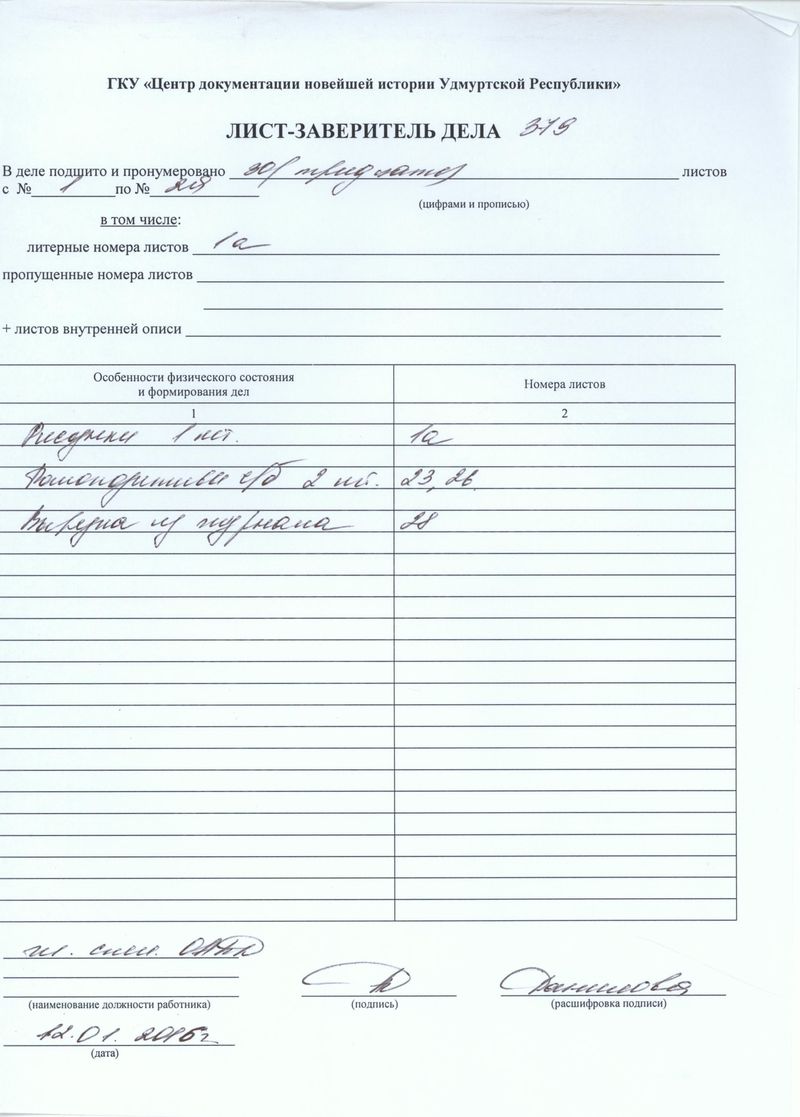 ГКУ «Центр документации новейшей истории Удмуртской Республики»
ЛИСТ-ЗАВЕРИТЕЛЬ ДЕЛА 379
В деле подшито и пронумеровано 30 (тридцать) листов
с № 1 по № 29
(цифрами и прописью)
в том числе:
литерные номера листов 1а
пропущенные номера листов
+ листов внутренней описи
Особенности физического состояния и формирования дел
Номера листов
1 2
Рисунки 1 шт. 1а
Фотографии ч/б 2 шт. 23, 26
Вырезка из журнала 28
гл. спец.
Данилова
(наименование должности работника) (подпись) (расшифровка подписи)
12.01.2016г
(дата)